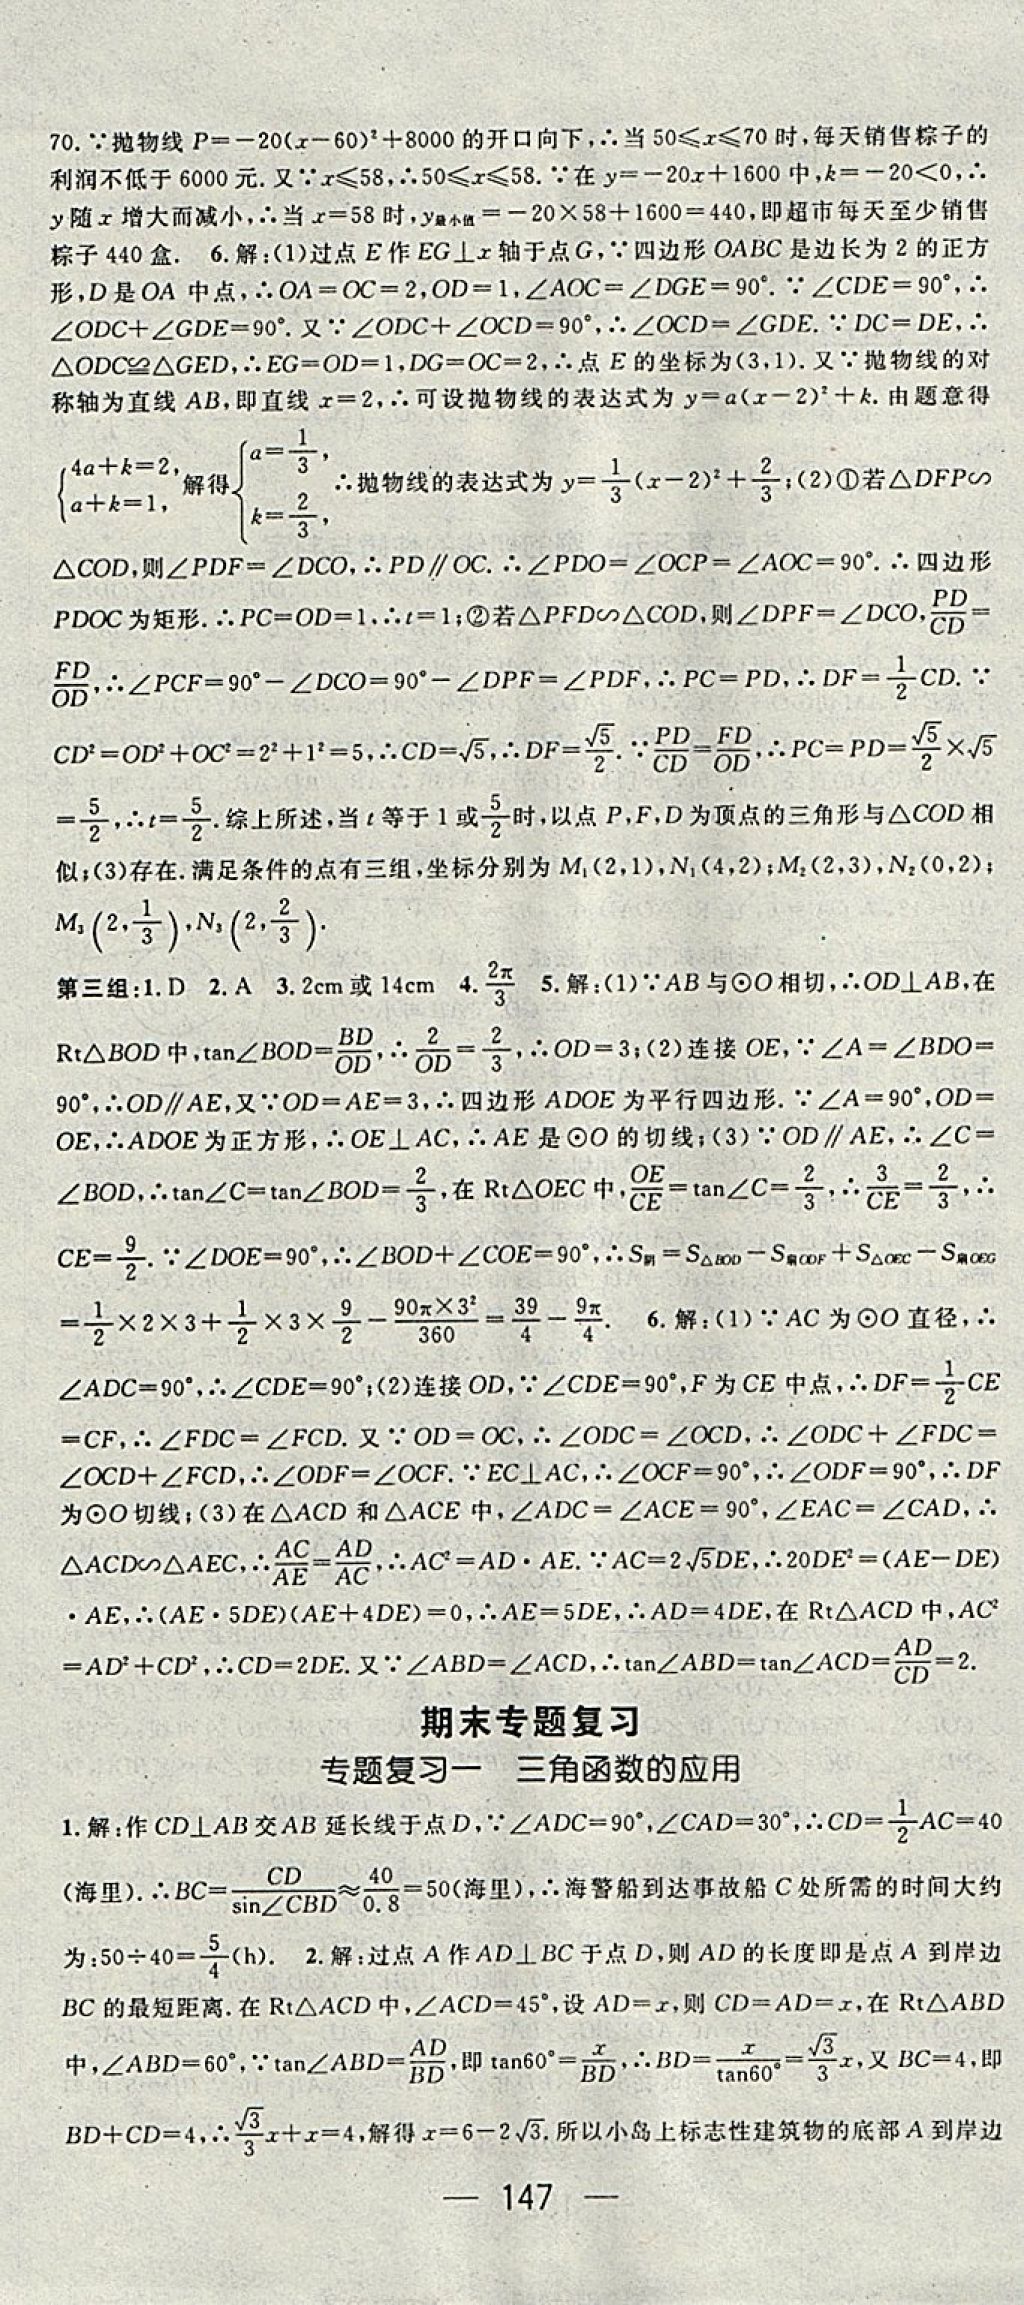 70.∵抛物线 P=-20(x-60)²+8000 的开口向下,∴当 50≤x≤70 时,每天销售粽子的
利润不低于 6000 元.又∵x≤58,∴50≤x≤58.∵在 y=-20x+1600 中,k=-20<0,∴
y 随 x 增大而减小,∴当 x=58 时,y最小值=-20×58+1600=440,即超市每天至少销售
粽子 440 盒. 6.解:(1)过点 E 作 EG⊥x 轴于点 G,∵四边形 OABC 是边长为 2 的正方
形,D 是 OA 中点,∴OA=OC=2,OD=1,∠AOC=∠DGE=90°.∵∠CDE=90°,∴
∠ODC+∠GDE=90°.又∵∠ODC+∠OCD=90°,∴∠OCD=∠GDE.∵DC=DE,∴
△ODC≌△GED,∴EG=OD=1,DG=OC=2,∴点 E 的坐标为(3,1).又∵抛物线的对
称轴为直线 AB,即直线 x=2,∴可设抛物线的表达式为 y=a(x-2)²+k.由题意得
{4a+k=2, a+k=1, 解得{a=1/3, k=2/3, ∴抛物线的表达式为 y=1/3(x-2)²+2/3;(2)①若△DFP∽
△COD,则∠PDF=∠DCO,∴PD∥OC.∴∠PDO=∠OCP=∠AOC=90°.∴四边形
PDOC 为矩形.∴PC=OD=1,∴t=1;②若△PFD∽△COD,则∠DPF=∠DCO,PD/CD=
FD/OD,∴∠PCF=90°-∠DCO=90°-∠DPF=∠PDF,∴PC=PD,∴DF=1/2CD.∵
CD²=OD²+OC²=2²+1²=5,∴CD=√5,∴DF=√5/2.∵PD/CD=FD/OD,∴PC=PD=√5/2×√5
=5/2,∴t=5/2.综上所述,当 t 等于 1 或5/2时,以点 P,F,D 为顶点的三角形与△COD 相
似;(3)存在.满足条件的点有三组,坐标分别为 M₁(2,1),N₁(4,2);M₂(2,3),N₂(0,2);
M₃(2,1/3),N₃(2,2/3).
第三组:1.D 2.A 3.2cm或14cm 4.2π/3 5.解:(1)∵AB 与⊙O 相切,∴OD⊥AB,在
Rt△BOD 中,tan∠BOD=BD/OD,∴2/OD=2/3,∴OD=3;(2)连接 OE,∵∠A=∠BDO=
90°,∴OD∥AE,又∵OD=AE=3,∴四边形 ADOE 为平行四边形.∵∠A=90°,OD=
OE,∴ADOE 为正方形,∴OE⊥AC,∴AE 是⊙O 的切线;(3)∵OD∥AE,∴∠C=
∠BOD,∴tan∠C=tan∠BOD=2/3,在 Rt△OEC 中,OE/CE=tan∠C=2/3,∴3/CE=2/3,∴
CE=9/2.∵∠DOE=90°,∴∠BOD+∠COE=90°,∴S阴=S△BOD-S扇ODF+S△OEC-S扇OEG
=1/2×2×3+1/2×3×9/2-90π×3²/360=39/4-9π/4. 6.解:(1)∵AC 为⊙O 直径,∴
∠ADC=90°,∴∠CDE=90°;(2)连接 OD,∵∠CDE=90°,F 为 CE 中点,∴DF=1/2CE
=CF,∴∠FDC=∠FCD.又∵OD=OC,∴∠ODC=∠OCD,∴∠ODC+∠FDC=
∠OCD+∠FCD,∴∠ODF=∠OCF.∵EC⊥AC,∴∠OCF=90°,∴∠ODF=90°,∴DF
为⊙O 切线;(3)在△ACD 和△ACE 中,∠ADC=∠ACE=90°,∠EAC=∠CAD,∴
△ACD∽△AEC,∴AC/AE=AD/AC,∴AC²=AD·AE.∵AC=2√5DE,∴20DE²=(AE-DE)
·AE,∴(AE·5DE)(AE+4DE)=0,∴AE=5DE,∴AD=4DE,在 Rt△ACD 中,AC²
=AD²+CD²,∴CD=2DE.又∵∠ABD=∠ACD,∴tan∠ABD=tan∠ACD=AD/CD=2.
期末专题复习
专题复习一 三角函数的应用
1.解:作 CD⊥AB 交 AB 延长线于点 D,∵∠ADC=90°,∠CAD=30°,∴CD=1/2AC=40
(海里).∴BC=CD/sin∠CBD≈40/0.8=50(海里),∴海警船到达事故船 C 处所需的时间大约
为:50÷40=5/4(h). 2.解:过点 A 作 AD⊥BC 于点 D,则 AD 的长度即是点 A 到岸边
BC 的最短距离.在 Rt△ACD 中,∠ACD=45°,设 AD=x,则 CD=AD=x,在 Rt△ABD
中,∠ABD=60°,∵tan∠ABD=AD/BD,即 tan60°=x/BD,∴BD=x/tan60°=√3/3x,又 BC=4,即
BD+CD=4,∴√3/3x+x=4,解得 x=6-2√3.所以小岛上标志性建筑物的底部 A 到岸边
— 147 —